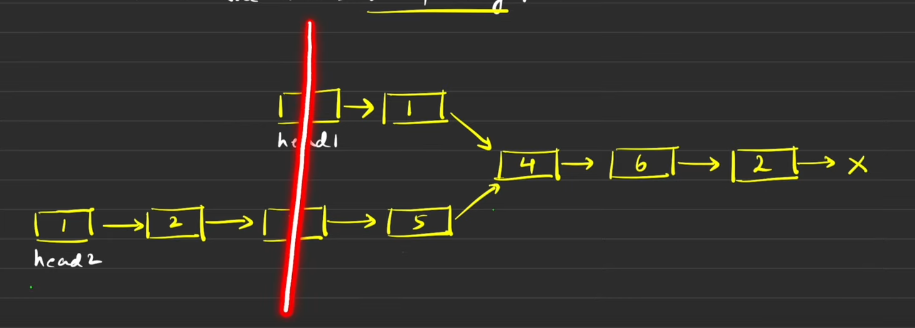 1
head1
4 6 2 X
1 2 5
head2